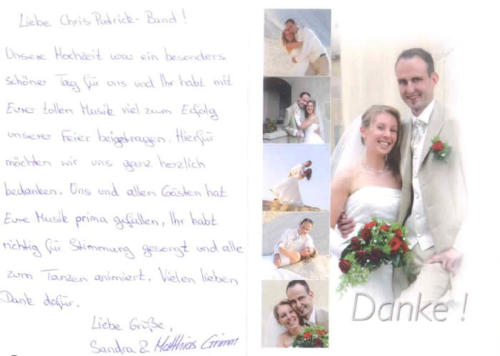 Liebe Chris Patrick-Band!
Unsere Hochzeit war ein besonders
schöner Tag für uns und Ihr habt mit
Eurer tollen Musik viel zum Erfolg
unserer Feier beigetragen. Hierfür
möchten wir uns ganz herzlich
bedanken. Uns und allen Gästen hat
Eure Musik prima gefallen, Ihr habt
richtig für Stimmung gesorgt und alle
zum Tanzen animiert. Vielen lieben
Dank dafür.
Liebe Grüße,
Sandra & Matthias Grimm
Danke!